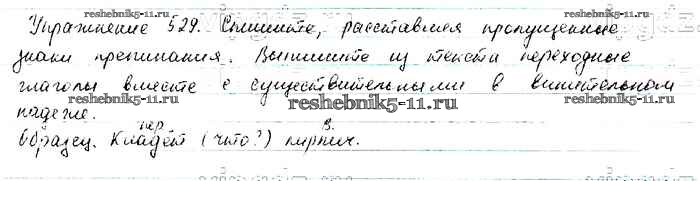 reshebnik5-11.ru
Упражнение 529. Спишите, расставляя пропущенные
знаки препинания. Выпишите из текста переходные
глаголы вместе с существительными в винительном
reshebnik5-11.ru reshebnik5-11.ru reshebnik5-11.ru
падеже.
пер. В.
Образец. Кладёт (что?) кирпич.